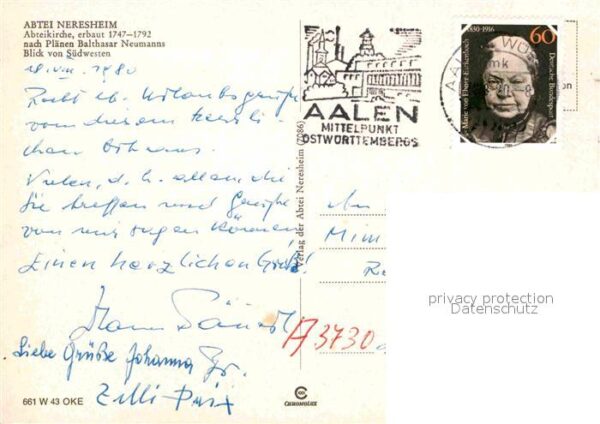 ABTEI NERESHEIM
Abteikirche, erbaut 1747—1792
nach Plänen Balthasar Neumanns
Blick von Südwesten
18. VIII. 1980
Recht lb. Urlaubsgrüße
von diesem
Vielen, d. h. allen, die
Sie treffen und Grüße
von mir sagen können,
Einen herzlichen Gruß!
Liebe Grüße Johanna
661 W 43 OKE
Verlag der Abtei Neresheim (7086)
AALEN
MITTELPUNKT
OSTWÜRTTEMBERGS
AALEN, WÜ
mk
1830-1916
60
Marie von Ebner-Eschenbach
Deutsche Bundespost
An
Mim
A 3730
privacy protection
Datenschutz